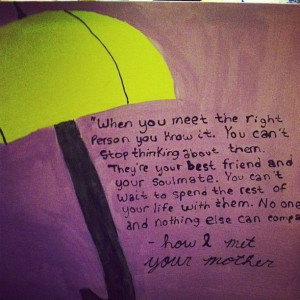 "When you meet the right
Person you know it. You can't
Stop thinking about them.
They're your best friend and
your soulmate. You can't
Wait to spend the rest of
your life with them. No one
and nothing else can compa
- how I met
your mother